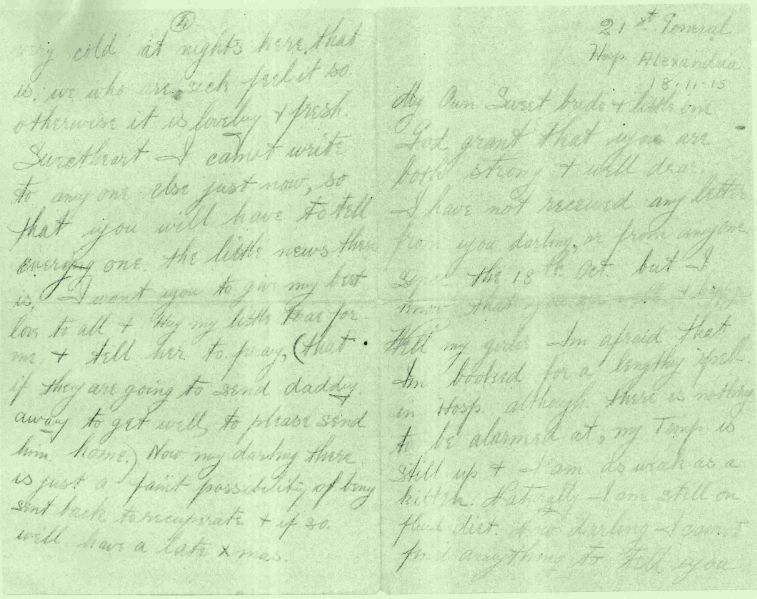 21st General
Hosp. Alexandria
18-11-15
My Own Sweet bride & little one
God grant that you are
both strong & well dear.
I have not received any letter
from you darling, or from anyone
since the 18th Oct. but I
know that you are well &
Well my girlie Im afraid that
Im booked for a lengthy spell
in Hosp. although there is nothing
to be alarmed at, my Temp is
still up & I am as weak as a
kitten. Naturally I am still on
fluid diet. no darling I
find anything to tell you
(4)
very cold at nights here, that
is, we who are sick feel it so.
otherwise it is lovely & fresh.
Sweetheart I cannot write
to any one else just now, so
that you will have to tell
every one the little news there
is. I want you to give my best
love to all & my little for
me & tell her to pray, (that
if they are going to send daddy
away to get well, to please send
him home.) Now my darling there
is just a faint possibility of being
sent back to recuperate & if so
we'll have a late xmas.